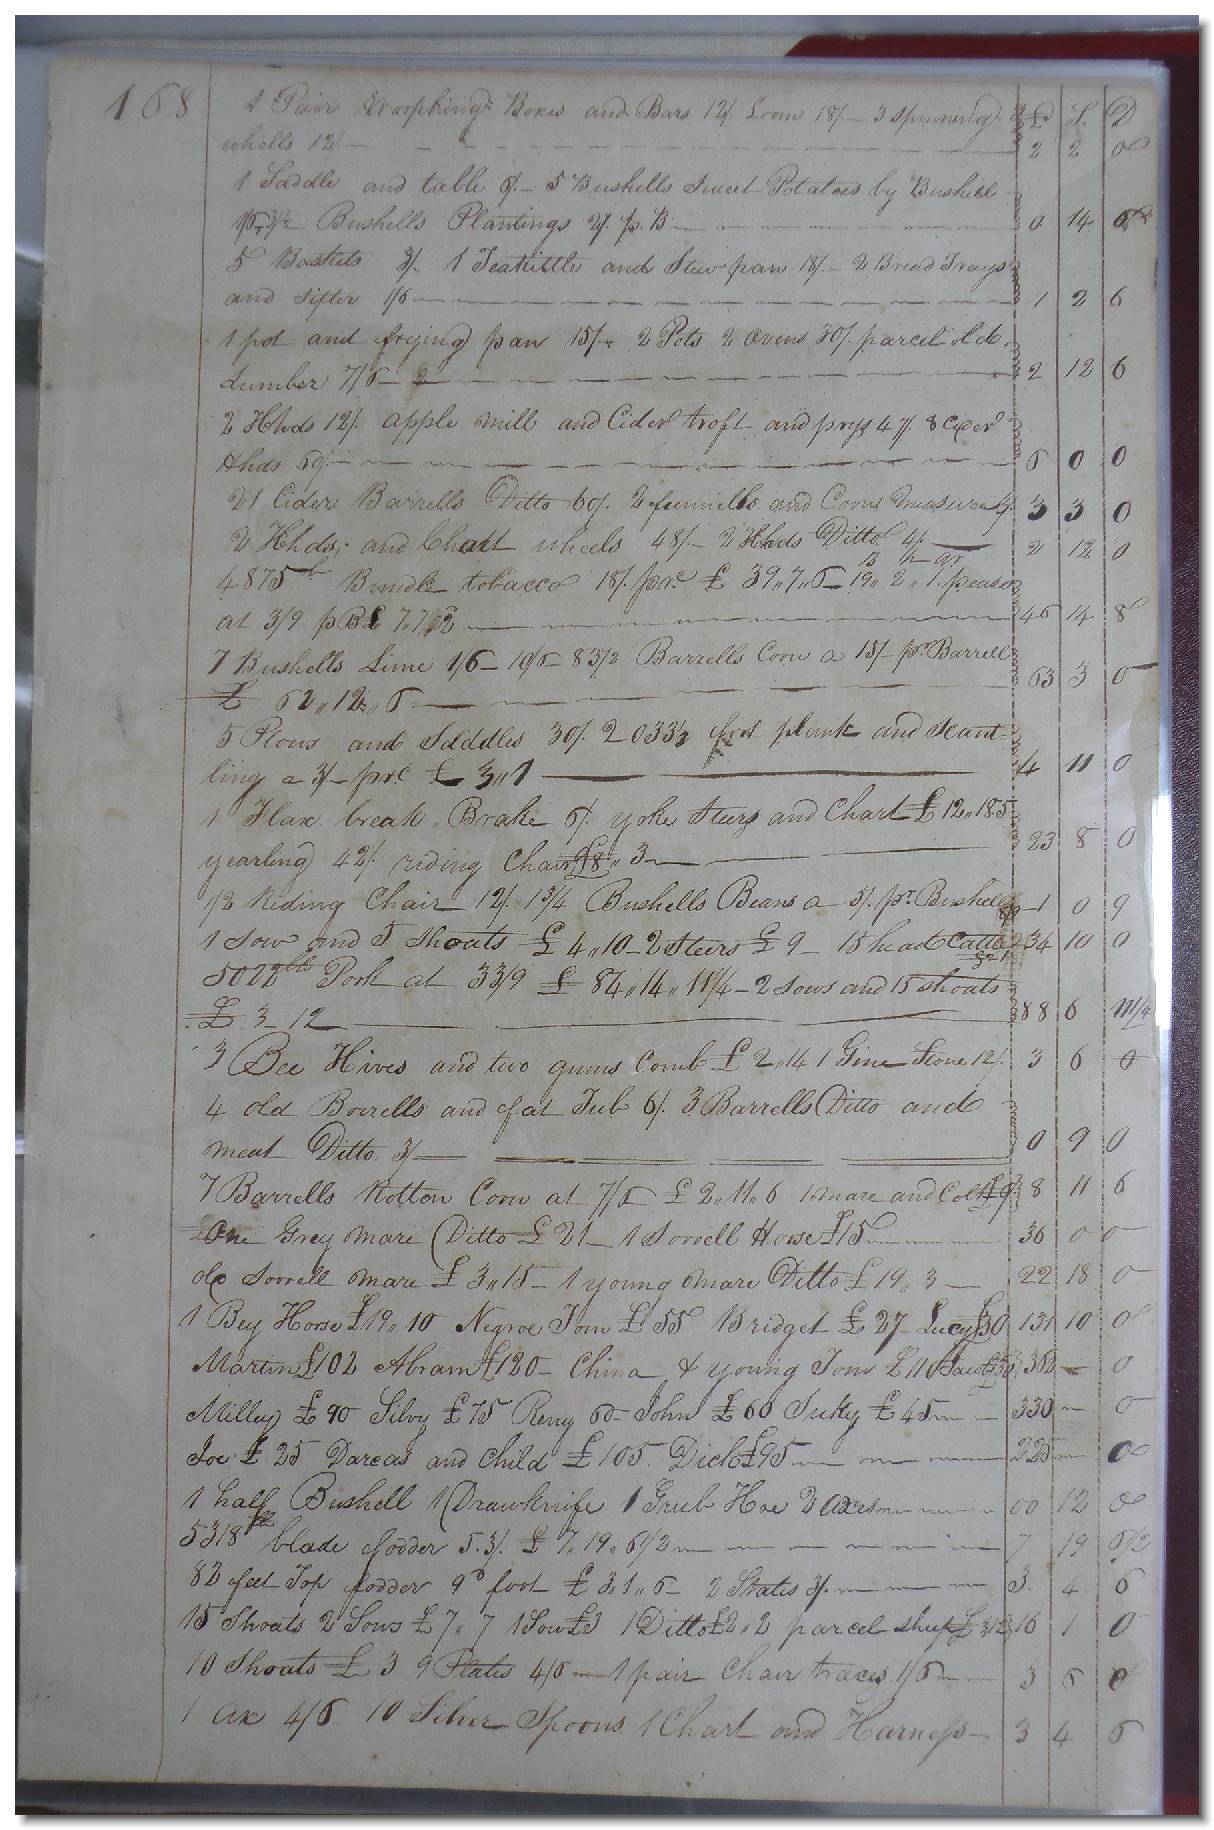 168 1 Pair Worphing Boxes and Bars 12/ Loom 18/– 3 Spinning £ S. D
whells 12/– 2 2 0
1 Saddle and table 6/– 5 Bushells Sweet Potatoes by Bushell
Bushells Plantings 2/. p. B 0 14
5 Baskets 3/. 1 Teakittle and Stew pan 18/– 2 Bread Trays
and sifter 1/6 1 2 6
1 pot and frying pan 15/– 2 Pots 2 ovens 30/. parcel old
Lumber 7/6 2 12 6
2 Hhds 12/. apple mill and Cider troft and prys 4 8 Cider
Hhds 60/– 6 0 0
21 Cider Barrells Ditto 60/. 2 funnills and Corn Measure 3 3 0
2 Hhds, and Chart wheels 48/– 2 Hhds Ditto 4/. 2 12 0
B h qr
4875 lb Bundle tobacco 18/. prc £ 39,,7,,6 19,, 2,, 1. pease
at 3/9 p B £ 7,, 46 14 8
7 Bushells Lime 1/6– 10/6– 83 1/2 Barrells Corn a 15/– pr. Barrell
£ 62,,12,,6 63 3 0
5 Plows and Saddles 30/. 2033 1/3 foot plank and Scant-
ling a 3/– prc £ 3,,1 4 11 0
1 Flax break. Brake 6/. yoke Steers and Chart £ 12,,18 5
yearling 42/. riding Chair £8,, 3 23 8 0
1/2 Riding Chair 12/. 1 3/4 Bushells Beans a 5/. pr. Bushell 1 0 9
1 Sow and 5 Shoats £ 4,,10– 2 Steers £ 9– 15 head Cattle £21 34 10 0
5022 lb Pork at 33/9 £ 84,,14,,11 1/4– 2 sows and 15 shoats
£ 3– 12 88 6 11 1/4
3 Bee Hives and two gums Comb £ 2,,14 1 Gine Stone 12/. 3 6 0
4 old Borrells and fat Tub 6/. 3 Barrells Ditto and
meat Ditto 3/– 0 9 0
7 Barrells Rotton Corn at 7/6 £ 2,,11,,6 1 mare and Colt £ 8 11 6
One Grey mare Ditto £ 21– 1 Sorrell Horse £15 36 0 0
do Sorrell mare £ 3,,15– 1 young mare Ditto £ 19,, 3 22 18 0
1 Bey Horse £19,,10 Negroe Tom £ 55 Bridget £ 27– Lucy £30 131 10 0
Martin £102 Abram £120– China & young Tom £110 0
Milley £ 90 Silvy £ 75 Reny 60– John £ 60 Sukey £ 45 330 – 0
Joe £ 25 Darcas and child £ 105. Dick £95 225 – 0
1 half Bushell 1 Drawknife 1 Grub Hoe 2 axes 00 12 0
5318 lb blade fodder 5.3/. £ 7,,19,,6 1/2 7 19 6 1/2
82 feet Top fodder 9d foot £ 3,,1,,6– 2 Slates 3/. 3. 4 6
15 Shoats 2 Sows £ 7,, 7 1 Sow £3 1 Ditto £2,,2 parcel sheep £ 3/12 16 1 0
10 Shoats £ 3 9 Plates 4/6 – 1 pair Chair traces 1/6 3 6 0
1 ax 4/6 10 Silver Spoons. 1 Chart and Harness 3 4 6